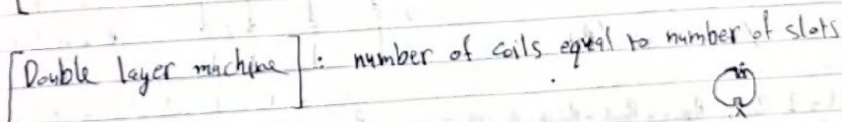 [Double layer machine] : number of coils equal to number of slots